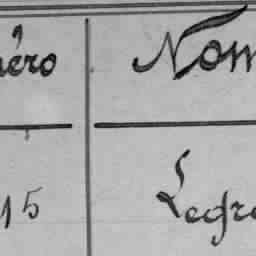 néro Nom
15 Legr